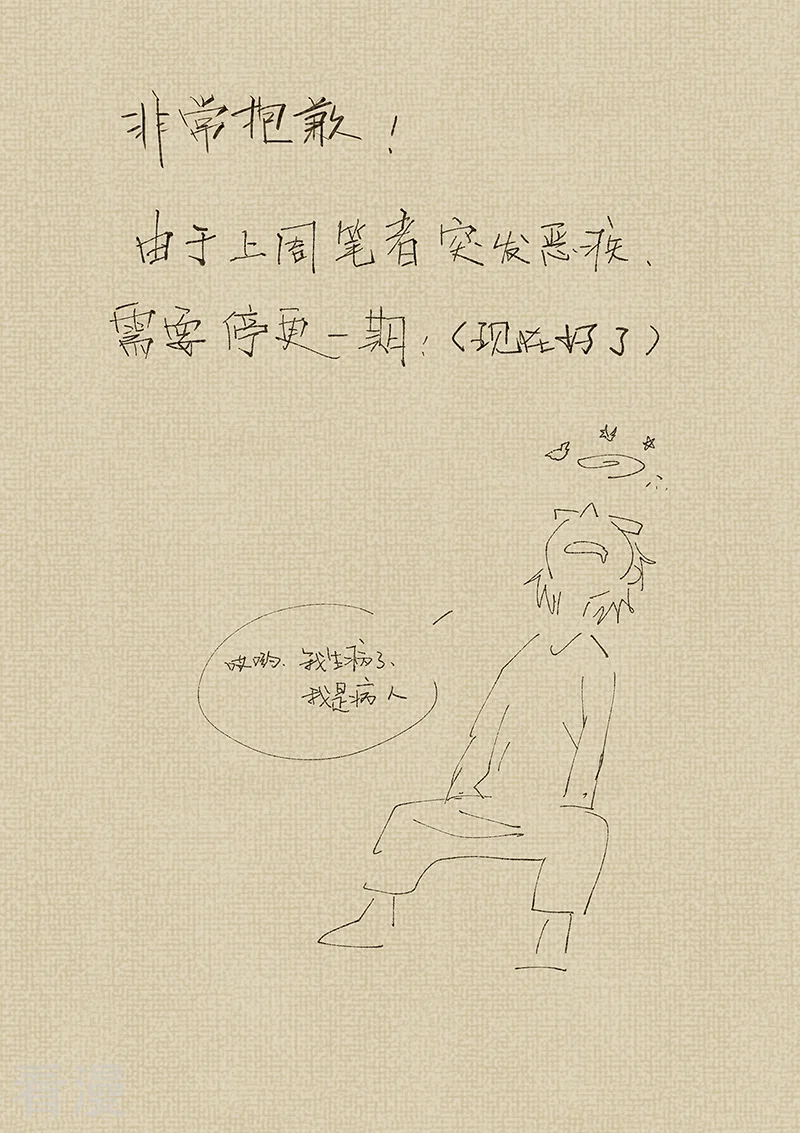 非常抱歉！
由于上周笔者突发恶疾、
需要停更一期；（现在好了）
哎哟、我生病了、
我是病人
看漫